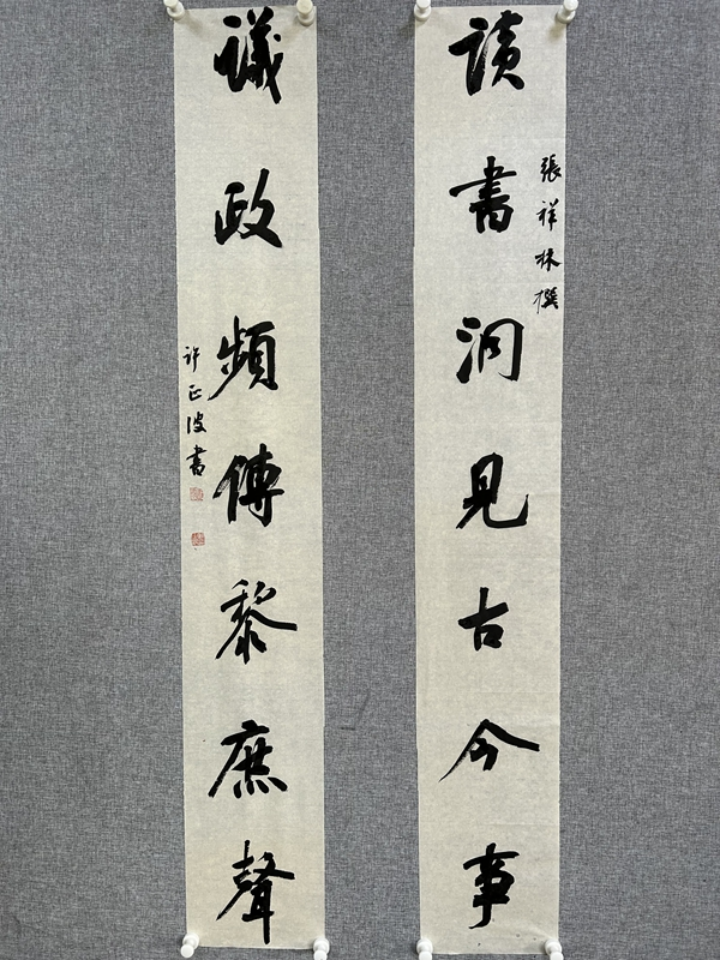 讀書洞見古今事
張祥林撰
議政頻傳黎庶聲
許正波書